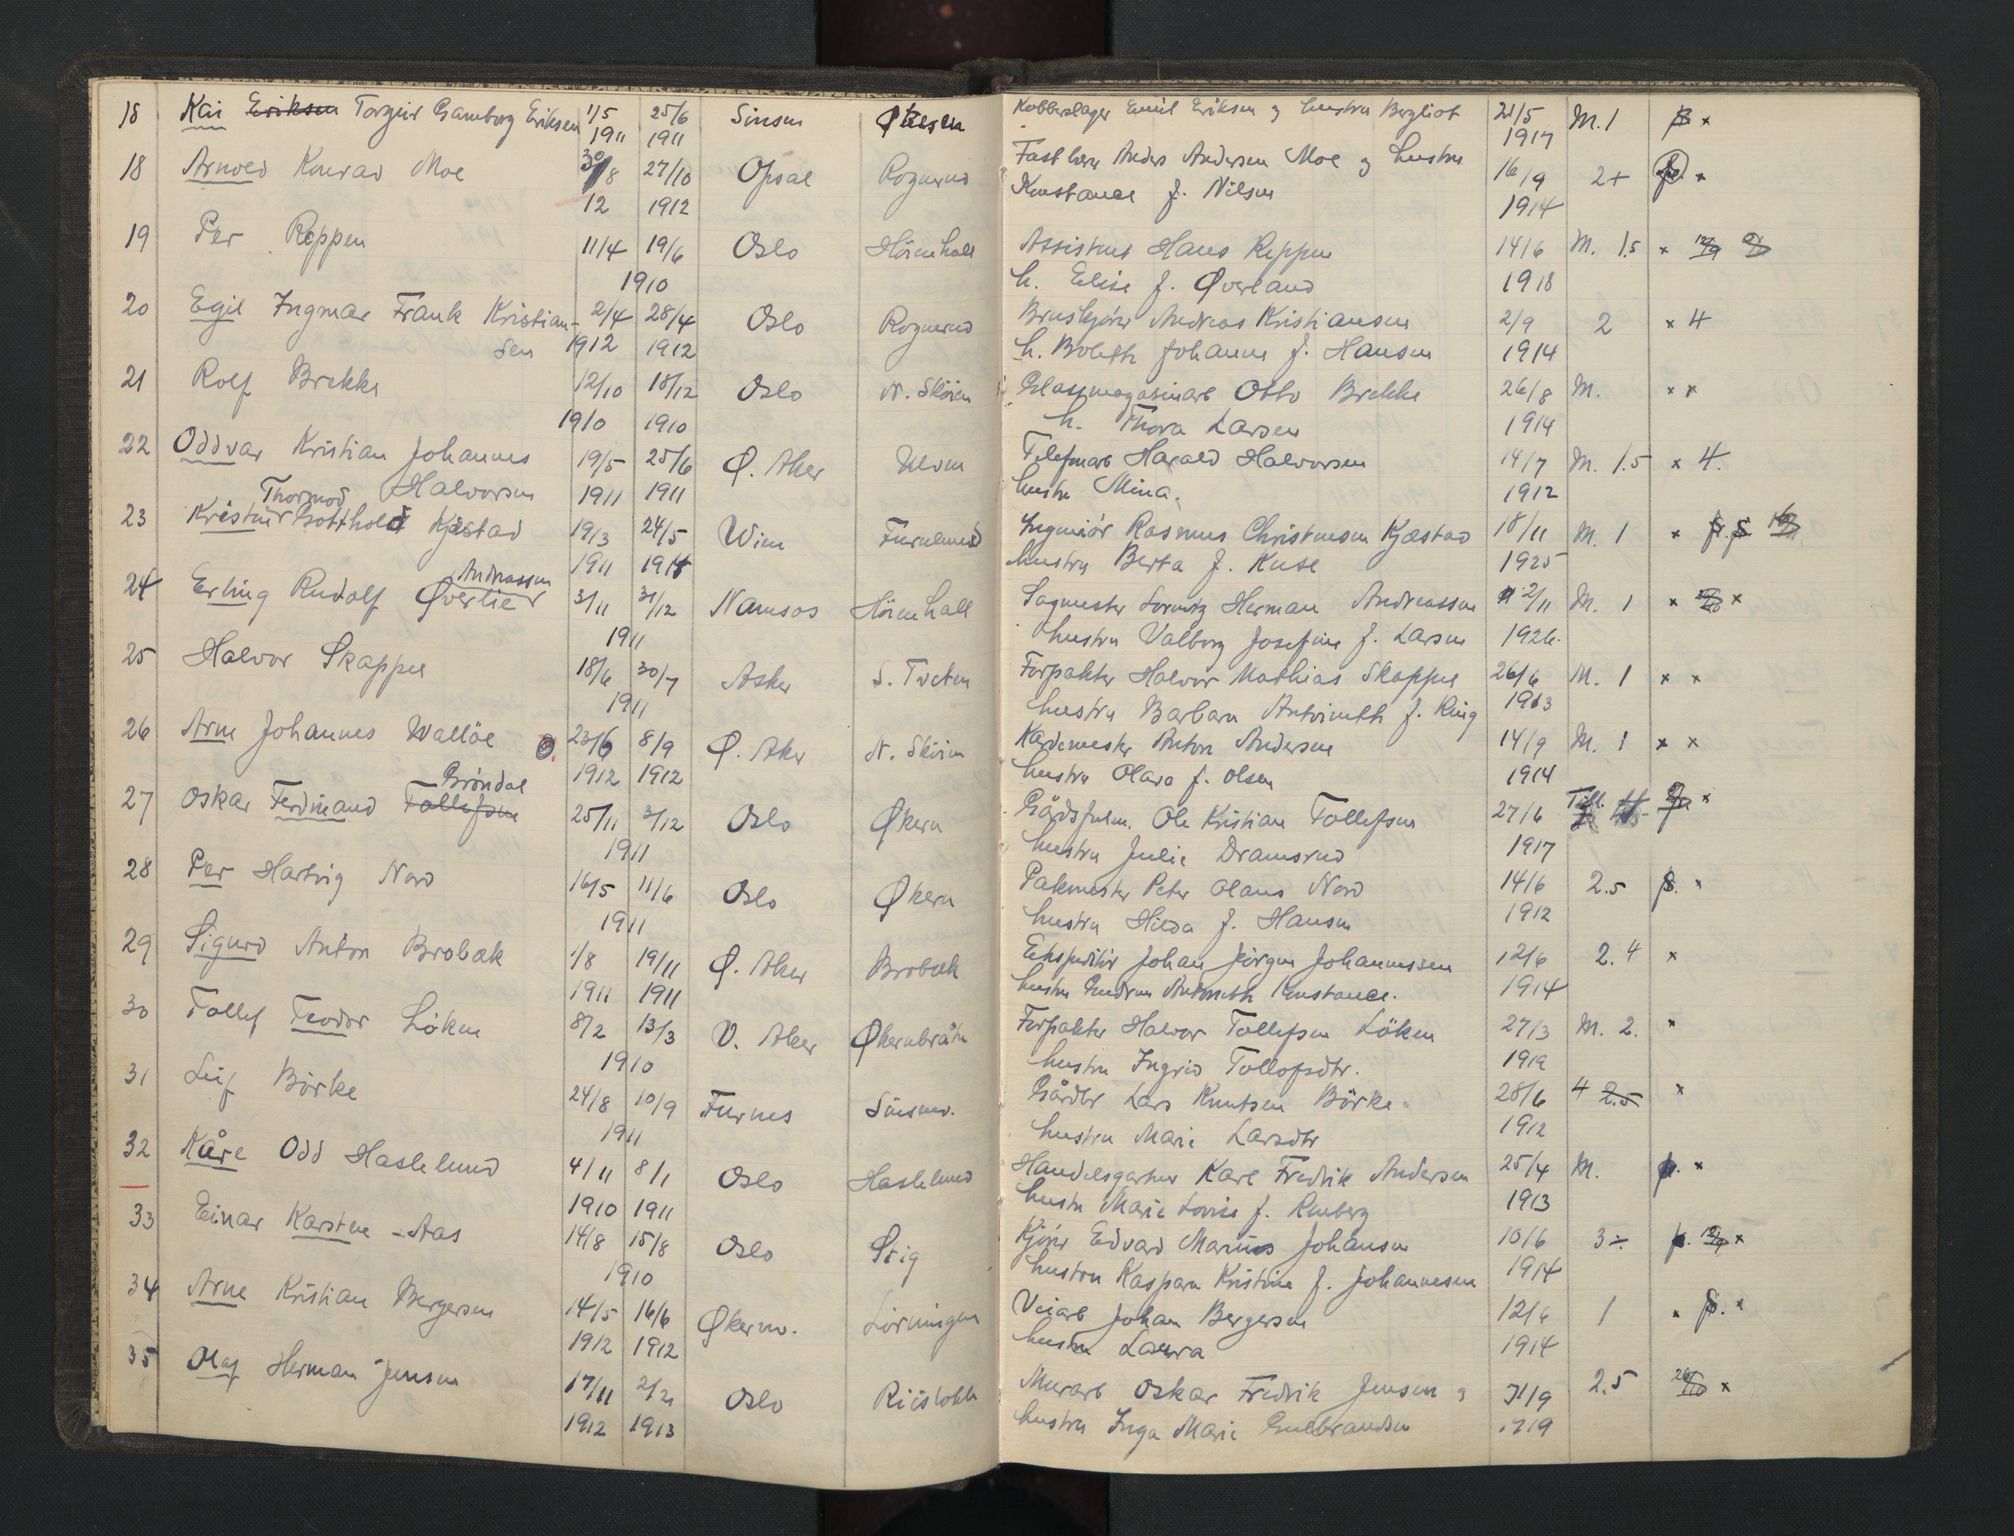 18 Kai Eriksen Torgeir Gamborg Eriksen 1/5 25/6 Sinsen Kobberslager Emil Eriksen og hustru Bergliot 21/5 M. 1 ×
1911 1911 1917
18 Arnold Konrad Moe 30/8 27/10 Opsal Rognerud Anders Andersen Moe og hustru 16/9 2+ ×
12 1912 Konstance f. Nilsen 1914
19 Per Reppen 11/4 19/6 Oslo Assistent Hans Reppen 14/6 M. 1.5 ×
1910 h. Elise f. Øverland 1918
20 Egil Ingmar Frank Kristian- 2/4 28/4 Oslo Rognerud Andreas Kristiansen 2/9 2 × 4
sen 1912 1912 h. Boleth Johanne f. Hansen 1914
21 Rolf Brekke 12/10 18/12 Oslo N. Skøien Glassmagasinarb Otto Brekke 26/8 M. × ×
1910 1910 h. Thora Larsen 1914
22 Oddvar Kristian Johannes 19/5 25/6 Ø. Aker Ulven Telefonarb Harald Halvorsen 14/7 M. 1.5 × 4.
Halvorsen 1911 1911 hustru Mina. 1912
Thormod
23 Gotthold Kjæstad 19/3 24/5 Furulund Ingeniør Rasmus Christensen Kjæstad 18/11 M. 1 ×
1911 1911 hustru Berta f. Kuse 1925
Andreassen
24 Erling Rudolf Øverlier 3/11 31/12 Namsos Sagmester Herman Andreassen 2/11 M. 1 × ×
1911 hustru Valborg Josefine f. Larsen 1926.
25 Halvor Skappel 18/6 30/7 Asker S. Tveten Forpakter Halvor Mathias Skappel 26/6 M. 1 × ×
1911 hustru Barbara Antoinette f. Ring 1913
26 Arne Johannes Walløe 23/6 8/9 Ø. Aker N. Skøien Kardemester Anton Andersen 14/9 M. 1 × ×
1912 1912 hustru Olava f. Olsen 1914
Grøndal
27 Oskar Ferdinand Tollefsen 25/11 3/12 Oslo Økern Gårdsfulm. Ole Kristian Tollefsen 27/6 ×
1911 hustru Julie Dramsrud 1917
28 Per Hartvig Nord 16/5 11/6 Oslo Økern Pakmester Peter Olaus Nord 14/6 2.5 ×
1911 hustru Hilda f. Hansen 1912
29 Sigurd Anton Brobæk 1/8 19/11 Ø. Aker Brobæk Ekspeditør Johan Jørgen Johannessen 12/6 2.4 ×
1911 1911 hustru Gudrun Antonette Konstance. 1914
30 Tollef Teodor Løken 8/2 13/3 V. Aker Økernbråten Forpakter Halvor Tollefsen Løken 27/3 M. 2. ×
1910 hustru Ingrid Tollofsdtr. 1912
31 Leif Børke 24/8 10/9 Furnes Sinsenv. Gårdbr Lars Knutsen Børke. 28/6 4 2.5 ×
1911 hustru Marie Larsdtr 1912
32 Kåre Odd Haslelund 4/11 8/1 Oslo Haslelund Handelsgartner Karl Fredrik Andersen 25/4 M. ×
1910 1911 hustru Marie Lovise f. Renberg 1913
33 Einar Karsten Aas 14/8 15/8 Oslo Stig Kjører Edvard Marius Johansen 10/6 3÷ ×
1910 hustru Kaspara Kristine f. Johannesen 1914
34 Arne Kristian Bergersen 14/5 16/6 Økernv. Lørningen Veiarb Johan Bergersen 12/6 1 × ×
1912 1912 hustru Laura 1914
35 Olaf Herman Jensen 17/11 2/2 Oslo Murarb Oskar Fredrik Jensen og 2.5 ×
1912 1913 hustru Inga Marie Gulbrandsen